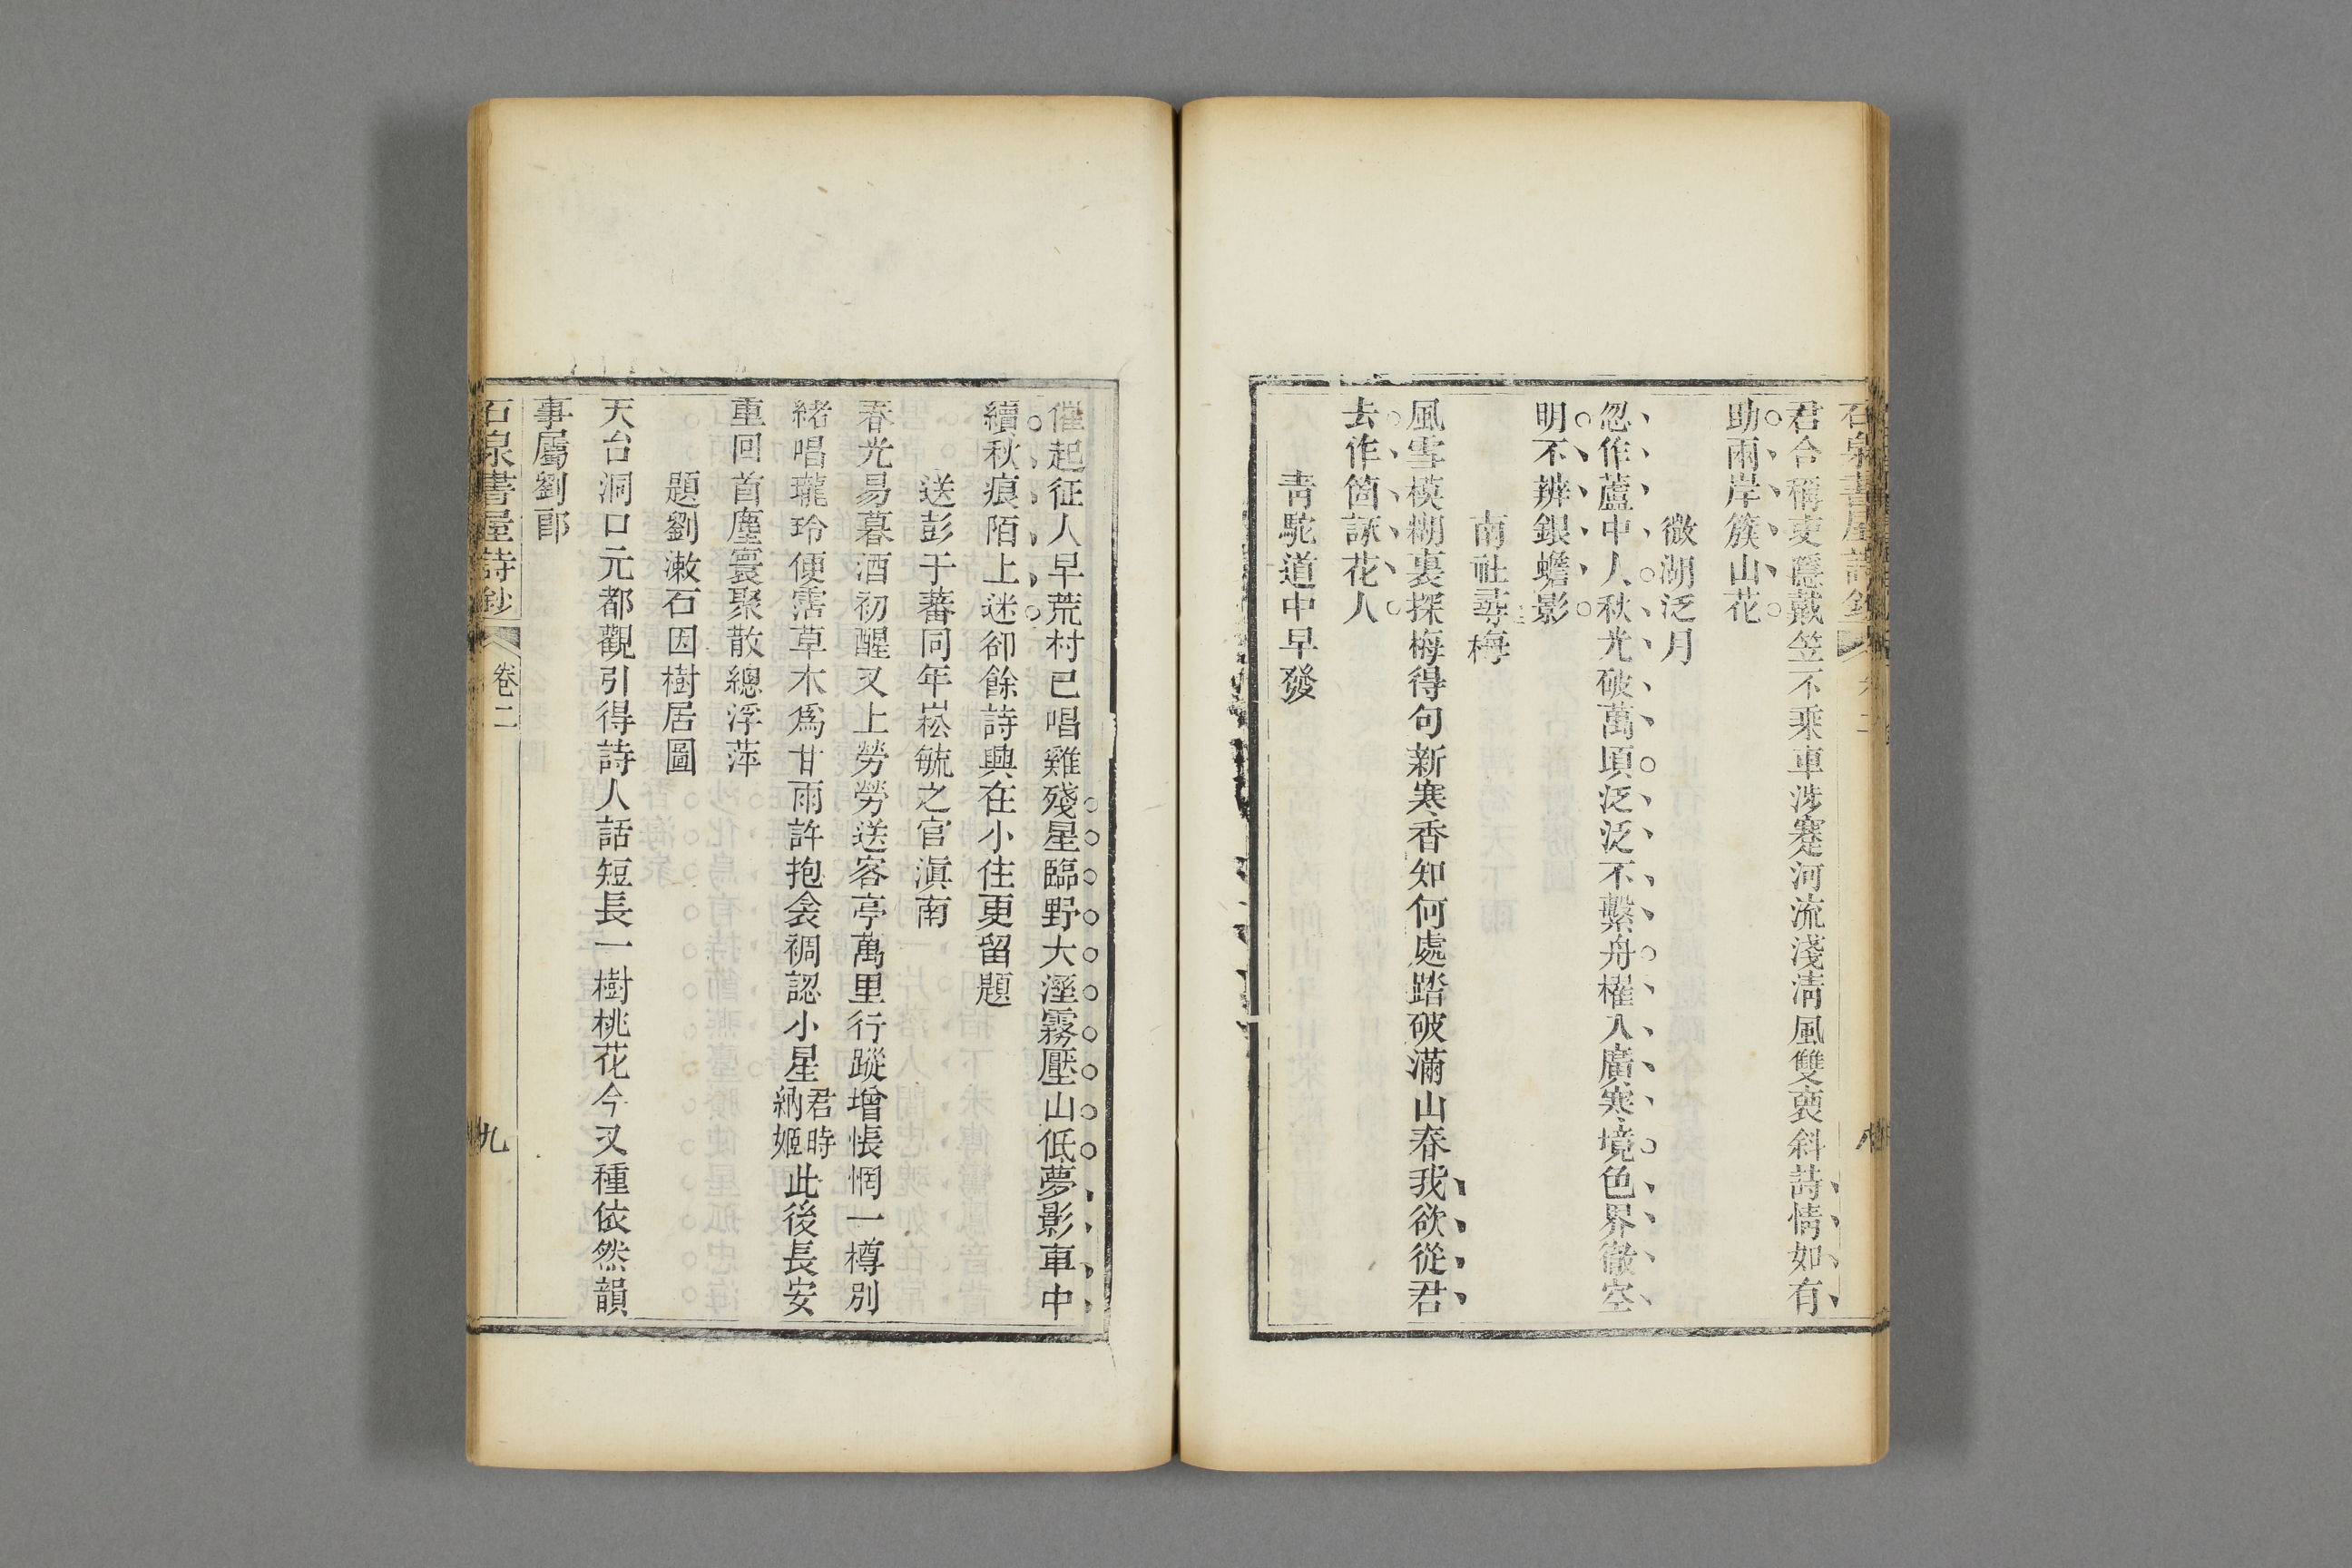 石泉書屋詩鈔
君合稱吏隱戴笠不乘車涉蹇河流淺淸風雙裒斜詩情如有
助兩岸簇山花
微湖泛月
忽作蘆中人秋光破萬頃泛泛不繫舟櫂入廣寒境色界徹空
明不辨銀蟾影
南社尋梅
風雪模糊裏探梅得句新寒香知何處踏破滿山春我欲從君
去作箇詠花人
靑駝道中早發
催起征人早荒村已唱雞殘星臨野大溼霧壓山低夢影車中
續秋痕陌上迷卻餘詩興在小住更留題
送彭于蕃同年崧毓之官滇南
春光易暮酒初醒又上勞勞送客亭萬里行蹤增悵惘一樽別
緒唱瓏玲便霑草木爲甘雨許抱衾裯認小星君時納姬此後長安
重回首塵寰聚散總浮萍
題劉漱石因樹居圖
天台洞口元都觀引得詩人話短長一樹桃花今又種依然韻
事屬劉郎
石泉書屋詩鈔
卷二
九